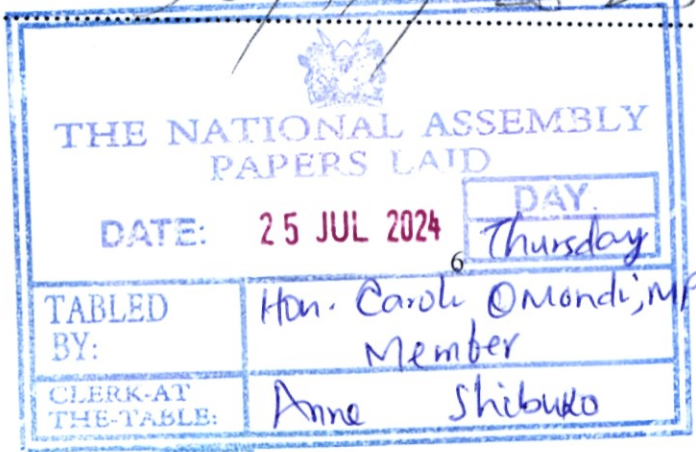 THE NATIONAL ASSEMBLY
PAPERS LAID
DATE: 25 JUL 2024
DAY.
Thursday
6
TABLED BY:
Hon. Caroli Omondi, MP
Member
CLERK-AT THE-TABLE:
Anne Shibuko